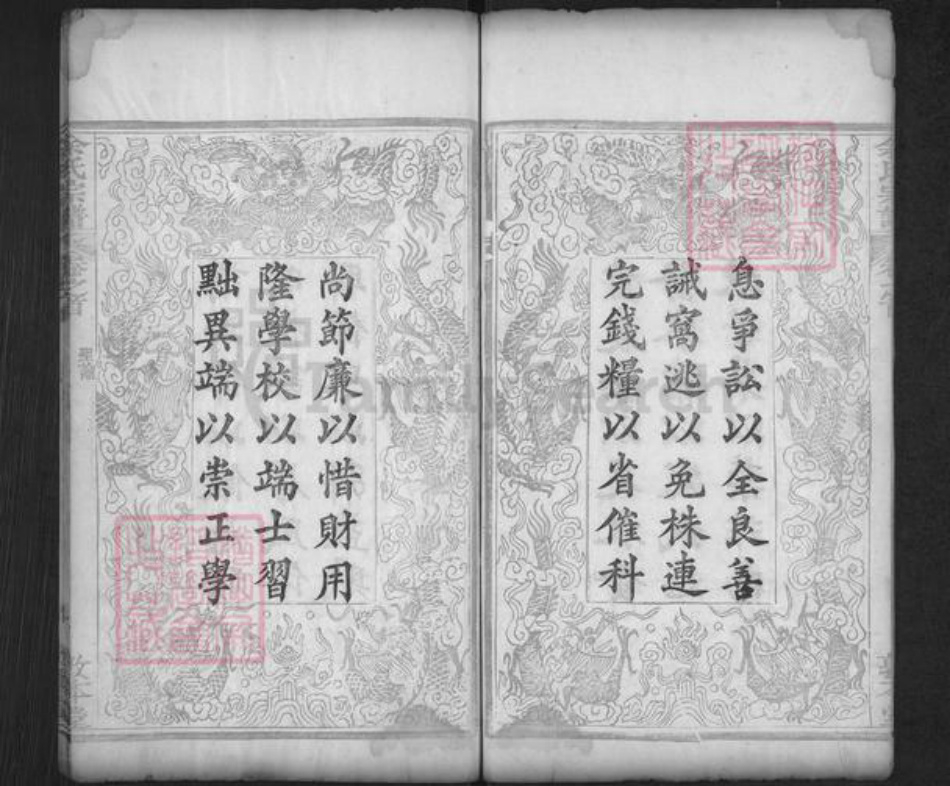 息爭訟以全良善
誡窩逃以免株連
完錢糧以省催科
尚節廉以惜財用
隆學校以端士習
黜異端以崇正學
FamilySearch